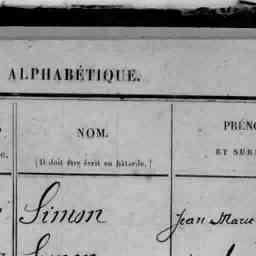 ALPHABÉTIQUE.
NOM.
(Il doit être écrit en bâtarde.)
PRÉNO
ET SUR
Simon
Jean Marie